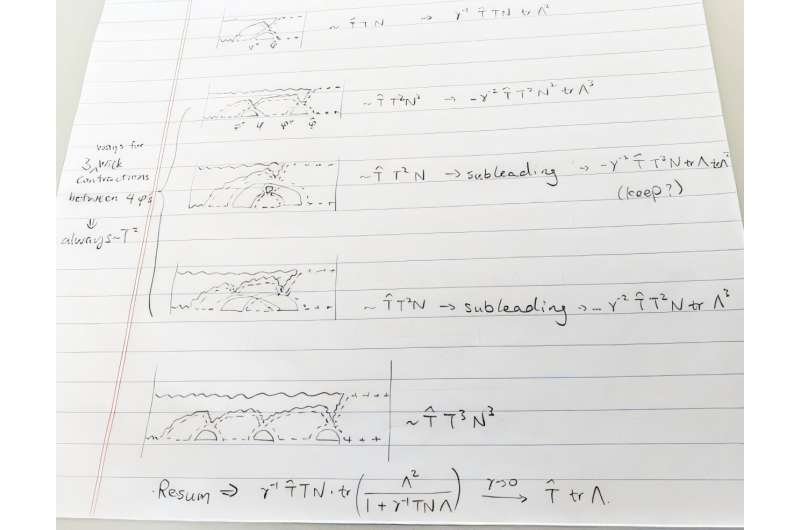 ~ T̂ T N → γ⁻¹ T̂ T N tr Λ²
φᵀ φ
~ T̂ T² N² → -γ⁻² T̂ T² N² tr Λ³
φᵀ φ φᵀ φ̂
ways for
3 Wick
contractions
between 4 φs
⇓
always ~ T²
~ T̂ T² N → subleading → -γ⁻² T̂ T² N tr Λ tr Λ²
(keep?)
~ T̂ T² N → subleading → - γ⁻² T̂ T² N tr Λ³
~ T̂ T³ N³
Resum ⇒ γ⁻¹ T̂ T N · tr ( Λ² / 1 + γ⁻¹ T N Λ ) γ→0 → T̂ tr Λ.